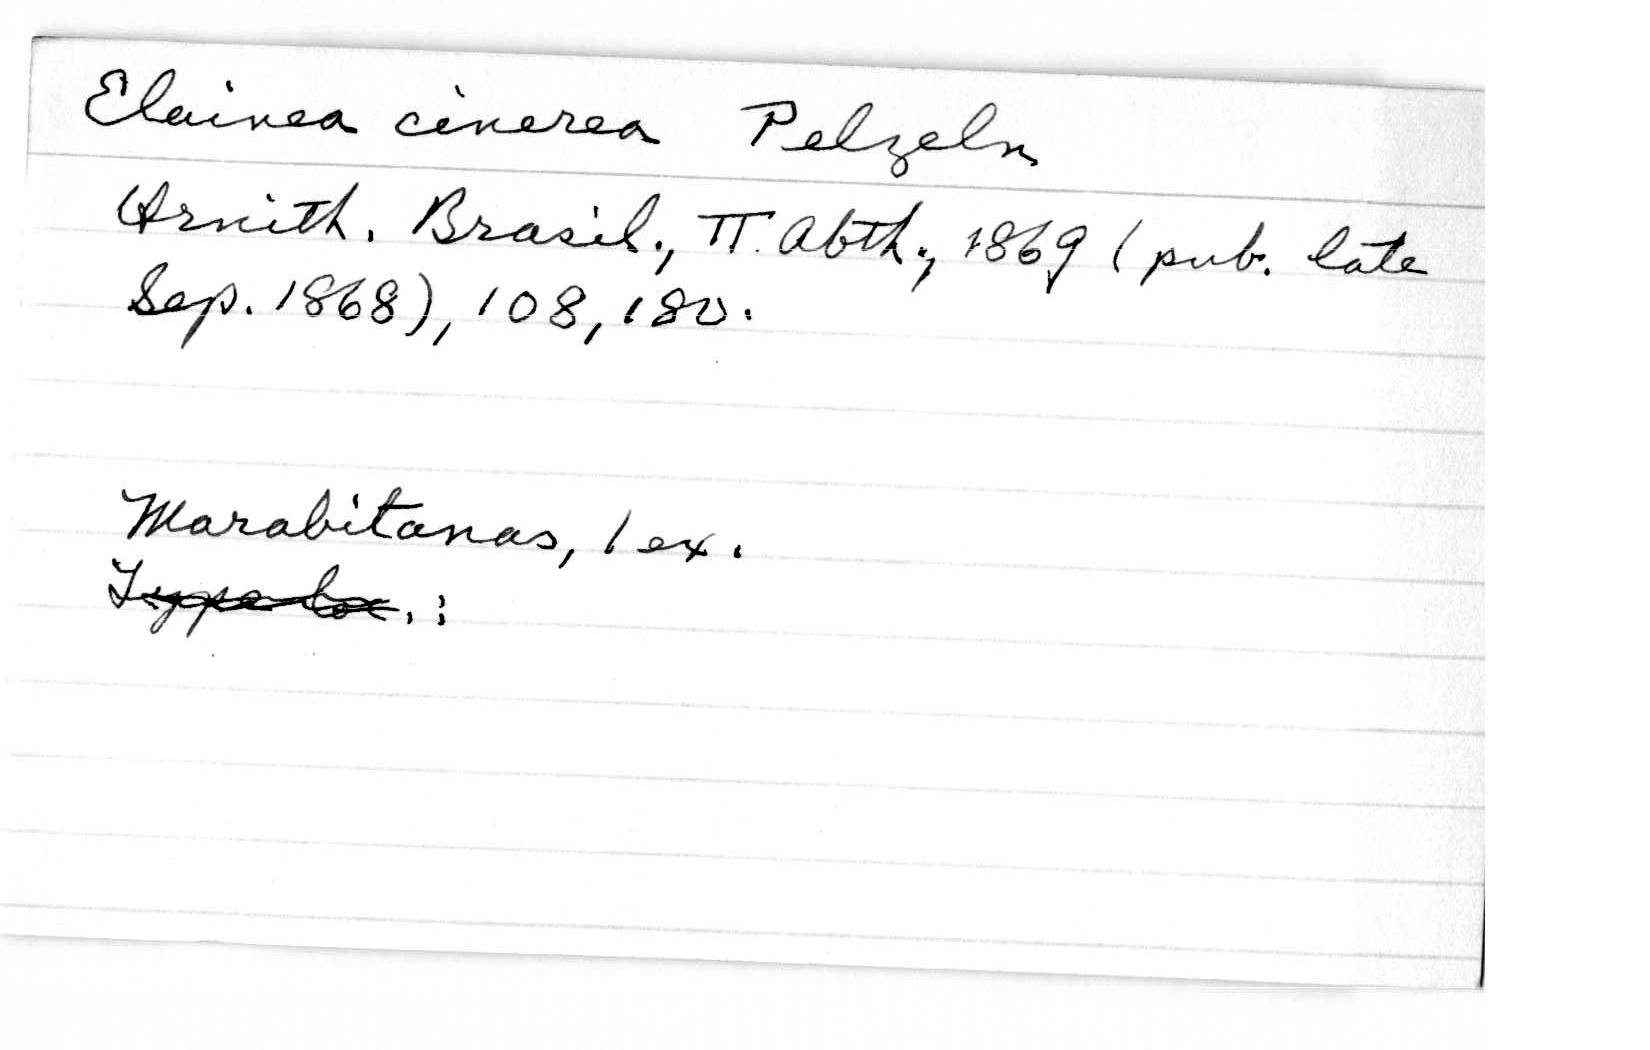 Elainea cinerea Pelzeln
Ornith. Brasil., II. Abth., 1869 (pub. late
Sep. 1868), 108, 180.
Marabitanas, 1 ex.
Type loc. :